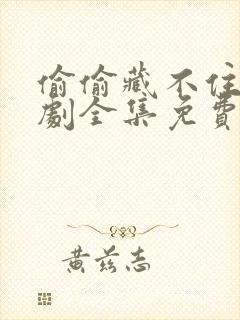 偷偷藏不住
劇全集免費
黃茲志